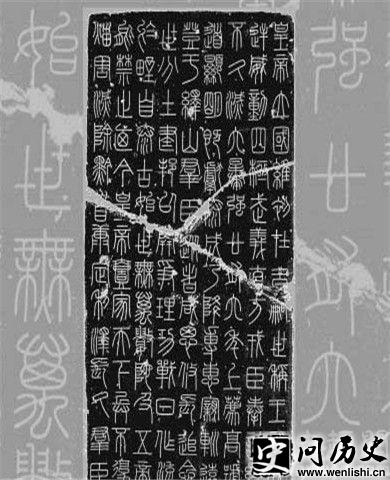 強廿有六
皇帝立國維初在昔嗣世稱王
逆威動四極武義直方戎臣奉
不久滅六暴強廿有六年上薦高號
道顯明既獻泰成乃降專惠親巡
登于繹山群臣從者咸思攸長追念
世分土建邦以開爭理功戰日作流
於野自泰古始世無萬數陀及五帝
能禁止廼今皇帝壹家天下兵不復
災害滅除黔首康定利澤長久群臣
始世無萬數
史问历史
www.wenlishi.cn